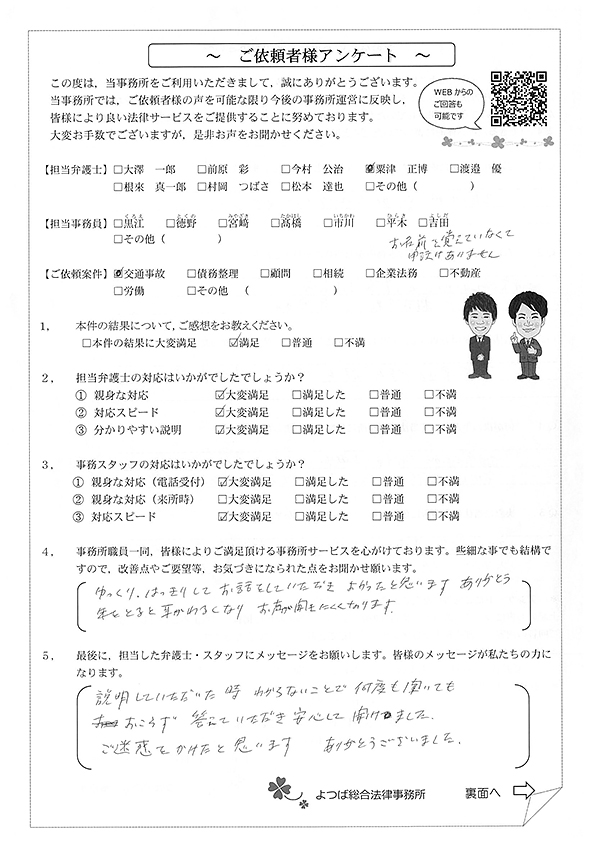 ～ ご依頼者様アンケート ～
この度は，当事務所をご利用いただきまして，誠にありがとうございます。
当事務所では，ご依頼者様の声を可能な限り今後の事務所運営に反映し，
皆様により良い法律サービスをご提供することに努めております。
大変お手数でございますが，是非お声をお聞かせください。
WEBからの
ご回答も
可能です
【担当弁護士】 □大澤 一郎 □前原 彩 □今村 公治 ☑粟津 正博 □渡邉 優
□根來 真一郎 □村岡 つばさ □松本 達也 □その他（ ）
【担当事務員】 □黒江 □徳野 □宮﨑 □髙橋 □市川 □平木 □吉田
□その他（ ）
お名前を覚えていなくて
申訳けありません
【ご依頼案件】 ☑交通事故 □債務整理 □顧問 □相続 □企業法務 □不動産
□労働 □その他 （ ）
１， 本件の結果について，ご感想をお教えください。
□本件の結果に大変満足 ☑満足 □普通 □不満
２， 担当弁護士の対応はいかがでしたでしょうか？
① 親身な対応 ☑大変満足 □満足した □普通 □不満
② 対応スピード ☑大変満足 □満足した □普通 □不満
③ 分かりやすい説明 ☑大変満足 □満足した □普通 □不満
３， 事務スタッフの対応はいかがでしたでしょうか？
① 親身な対応（電話受付） ☑大変満足 □満足した □普通 □不満
② 親身な対応（来所時） □大変満足 □満足した □普通 □不満
③ 対応スピード ☑大変満足 □満足した □普通 □不満
４， 事務所職員一同，皆様によりご満足頂ける事務所サービスを心がけております。些細な事でも結構で
すので，改善点やご要望等，お気づきになられた点をお聞かせ願います。
ゆっくり、はっきりして お話をしていただき よかったと思います ありがとう
年をとると耳がわるくなり お声が聞きにくくなります.
５， 最後に，担当した弁護士・スタッフにメッセージをお願いします。皆様のメッセージが私たちの力に
なります。
説明していただいた時 わからないことで 何度も聞いても
おこらず 答えていただき 安心して 聞けました.
ご迷惑をかけたと思います ありがとうございました.
よつば総合法律事務所
裏面へ